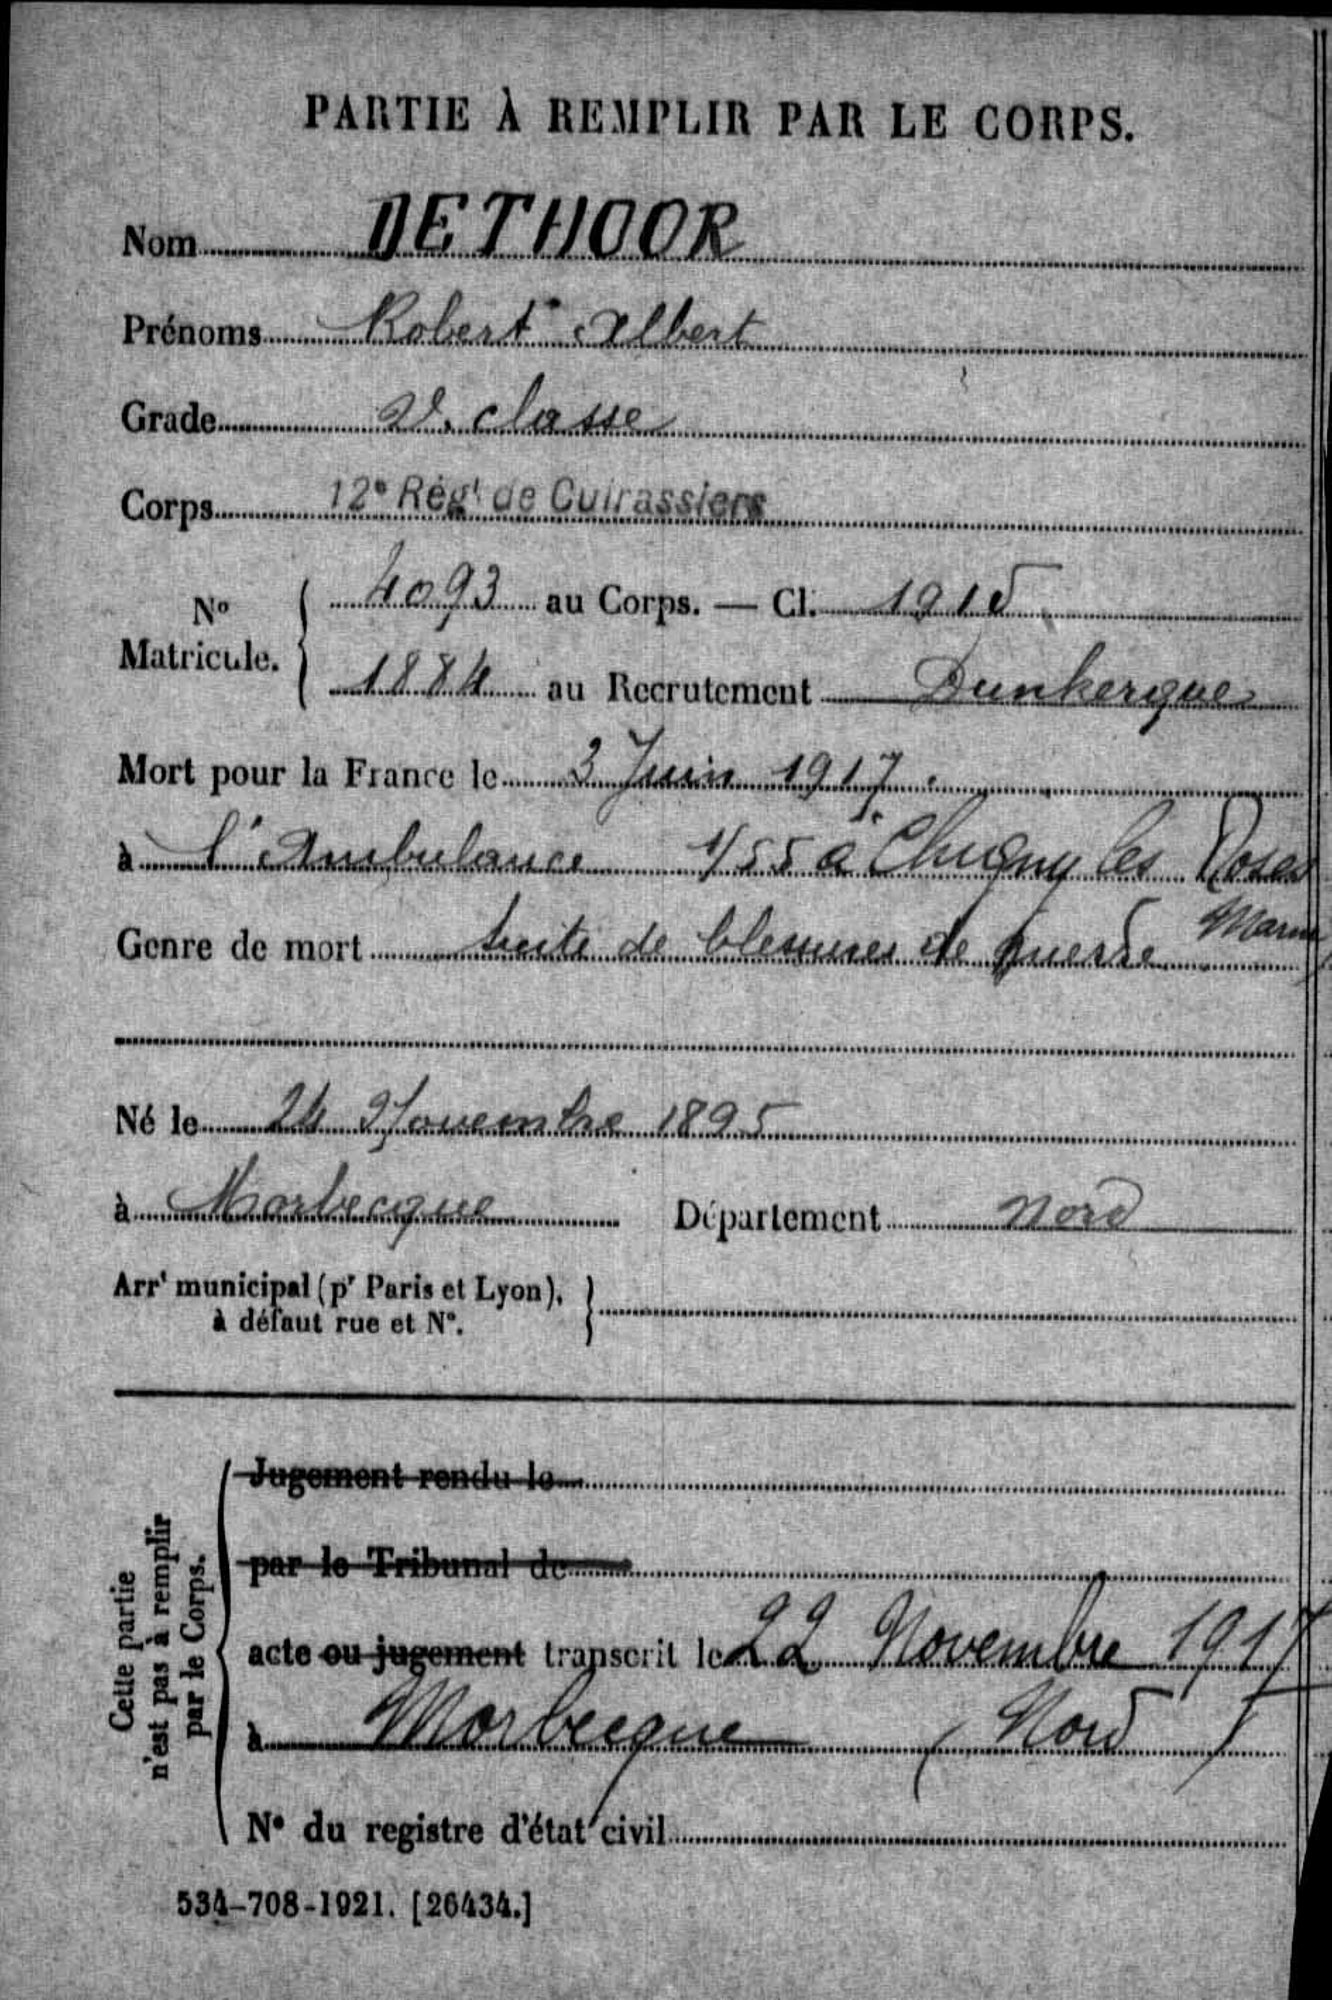 PARTIE À REMPLIR PAR LE CORPS.
Nom DETHOOR
Prénoms Robert Albert
Grade 2e classe
Corps 12e Régt de Cuirassiers
No Matricule. 4093 au Corps. — Cl. 1915
1884 au Recrutement Dunkerque
Mort pour la France le 3 Juin 1917.
à l'Ambulance 1/55 à Chigny les Roses
Marne
Genre de mort suite de blessures de guerre
Né le 24 Novembre 1895
à Morbecque Département Nord
Arrt municipal (pr Paris et Lyon),
à défaut rue et No.
Cette partie
n'est pas à remplir
par le Corps.
Jugement rendu le
par le Tribunal de
acte ou jugement transcrit le 22 Novembre 1917
à Morbecque (Nord)
No du registre d'état civil
534-708-1921. [26434.]